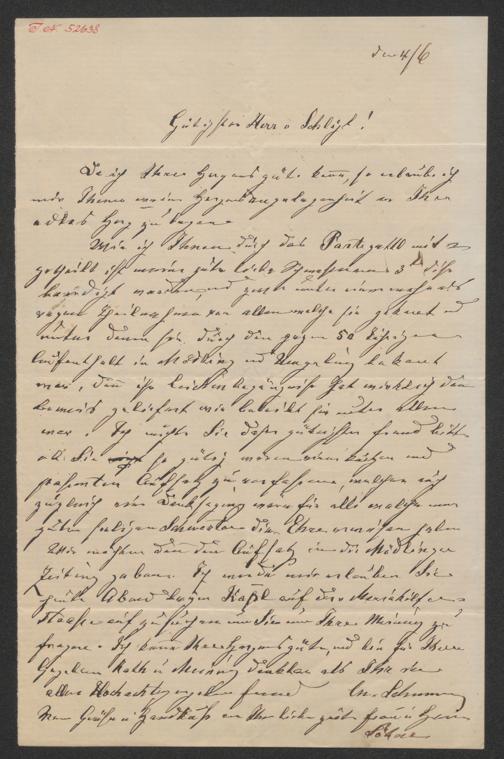 den 4/6
Gütigster Herr v Schlögl!
Da ich Ihre Herzensgüte kenn, so erlaube ich
mir Ihnen meine Herzensangelegenheit an Ihr
edles Herz zu legen.
Wie ich Ihnen durch das Partezettl mit
getheilt ist meine gute liebe Schwester um 3
beerdigt worden, und zwar unter einer
regen Theilnahme von allen welche sie gekannt
durch den gegen 50 jährigen
Aufenthalt in Mödling und Umgebung bekannt
war, den ihr Leichenbegängniß hat wirklich den
Beweis geliefert wie beliebt sie unter allen
war. Ich möchte Sie daher gütigster freund bitten
ob Sie so gütig wären einen kurzen und
passenden Aufsatz zu verfassen, welcher auch
zugleich eine Danksagung wäre für alle welche unser
guten seligen Schwester die Ehre erwiesen haben
Wir möchten dan den Aufsatz in die Mödlinger
Zeitung geben. Ich werde mir erlauben Sie
heute Abend beym auf der Mariahilfer
Strasse aufzusuchen um Sie um Ihre Meinung zu
fragen. Ich kenne Ihre Herzensgüte, und bin für Ihren
Rath u Meinung dankbar als Ihr Sie
aller Hochachtung freund
Meine Grüße u Handküsse an Ihre liebe gute frau u Herrn